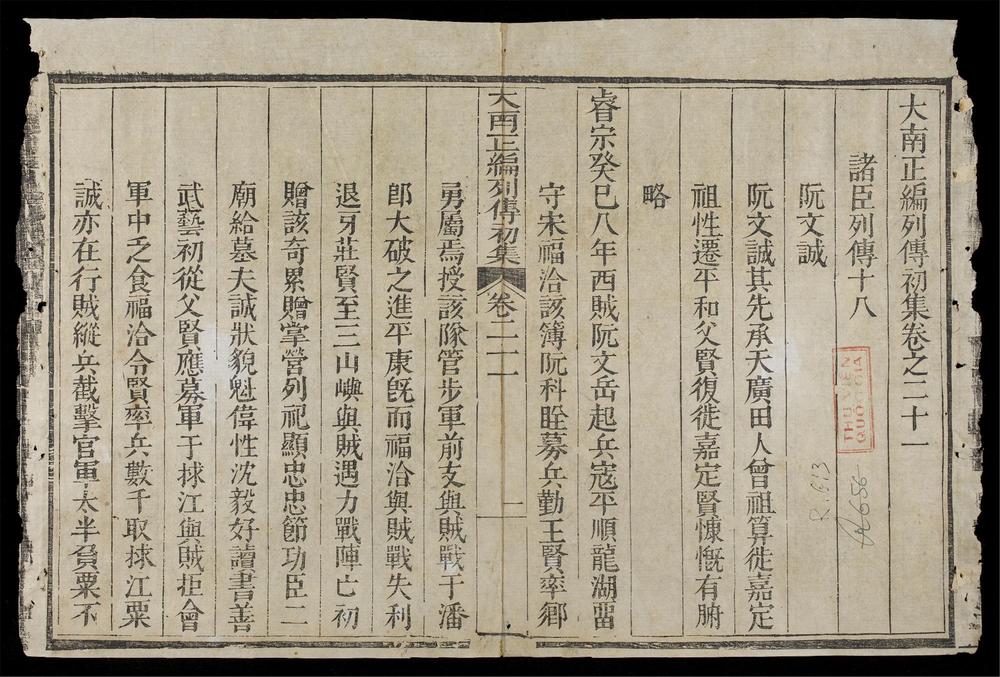 大南正編列傳初集卷之二十一
諸臣列傳十八
阮文誠
阮文誠其先承天廣田人曾祖算徙嘉定
祖性遷平和父賢復徙嘉定賢慷慨有膂
略
睿宗癸巳八年西賊阮文岳起兵寇平順龍湖畱
守宋福洽該簿阮科詮募兵勤王賢率鄉
大南正編列傳初集 卷二十一 一
勇屬焉授該隊管步軍前支與賊戰于潘
郎大破之進平康旣而福洽與賊戰失利
退牙莊賢至三山嶼與賊遇力戰陣亡初
贈該奇累贈掌營列祀顯忠忠節功臣二
廟給墓夫誠狀貌魁偉性沈毅好讀書善
武藝初從父賢應募軍于捄江與賊拒會
軍中乏食福洽令賢率兵數千取捄江粟
誠亦在行賊縱兵截擊官軍太半負粟不
THU VIEN
QUOC GIA
R.1513